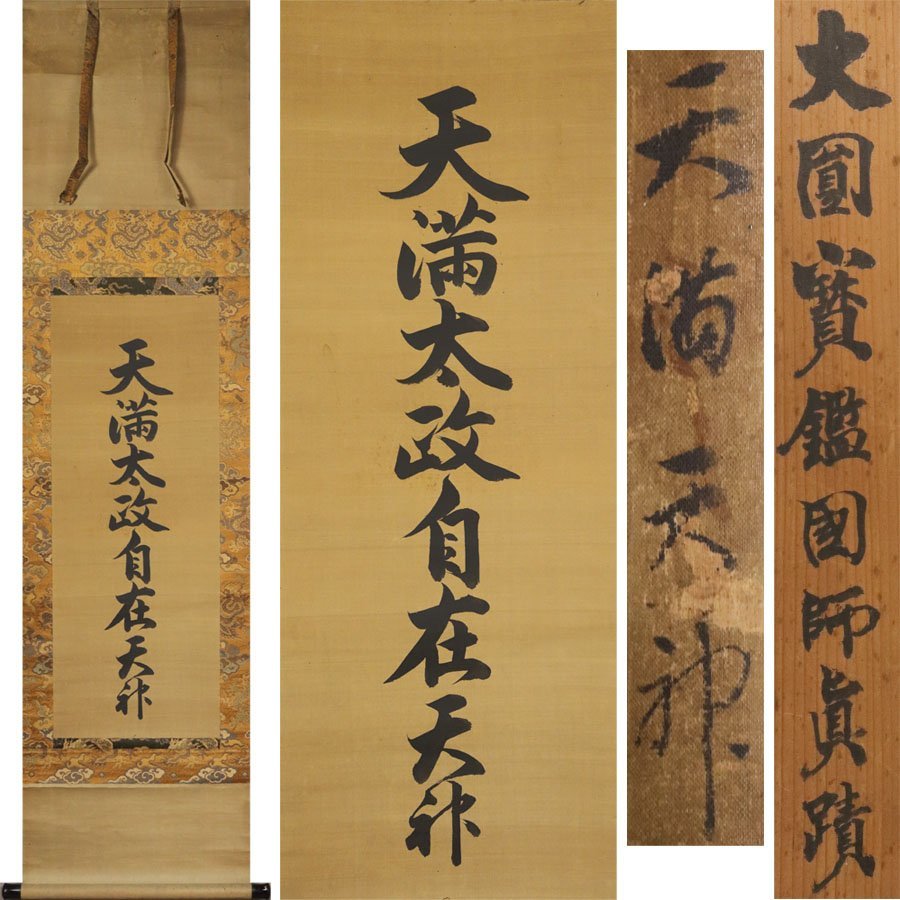 天満太政自在天神
天満太政自在天神
天満天神
大圓寳鑑國師眞蹟